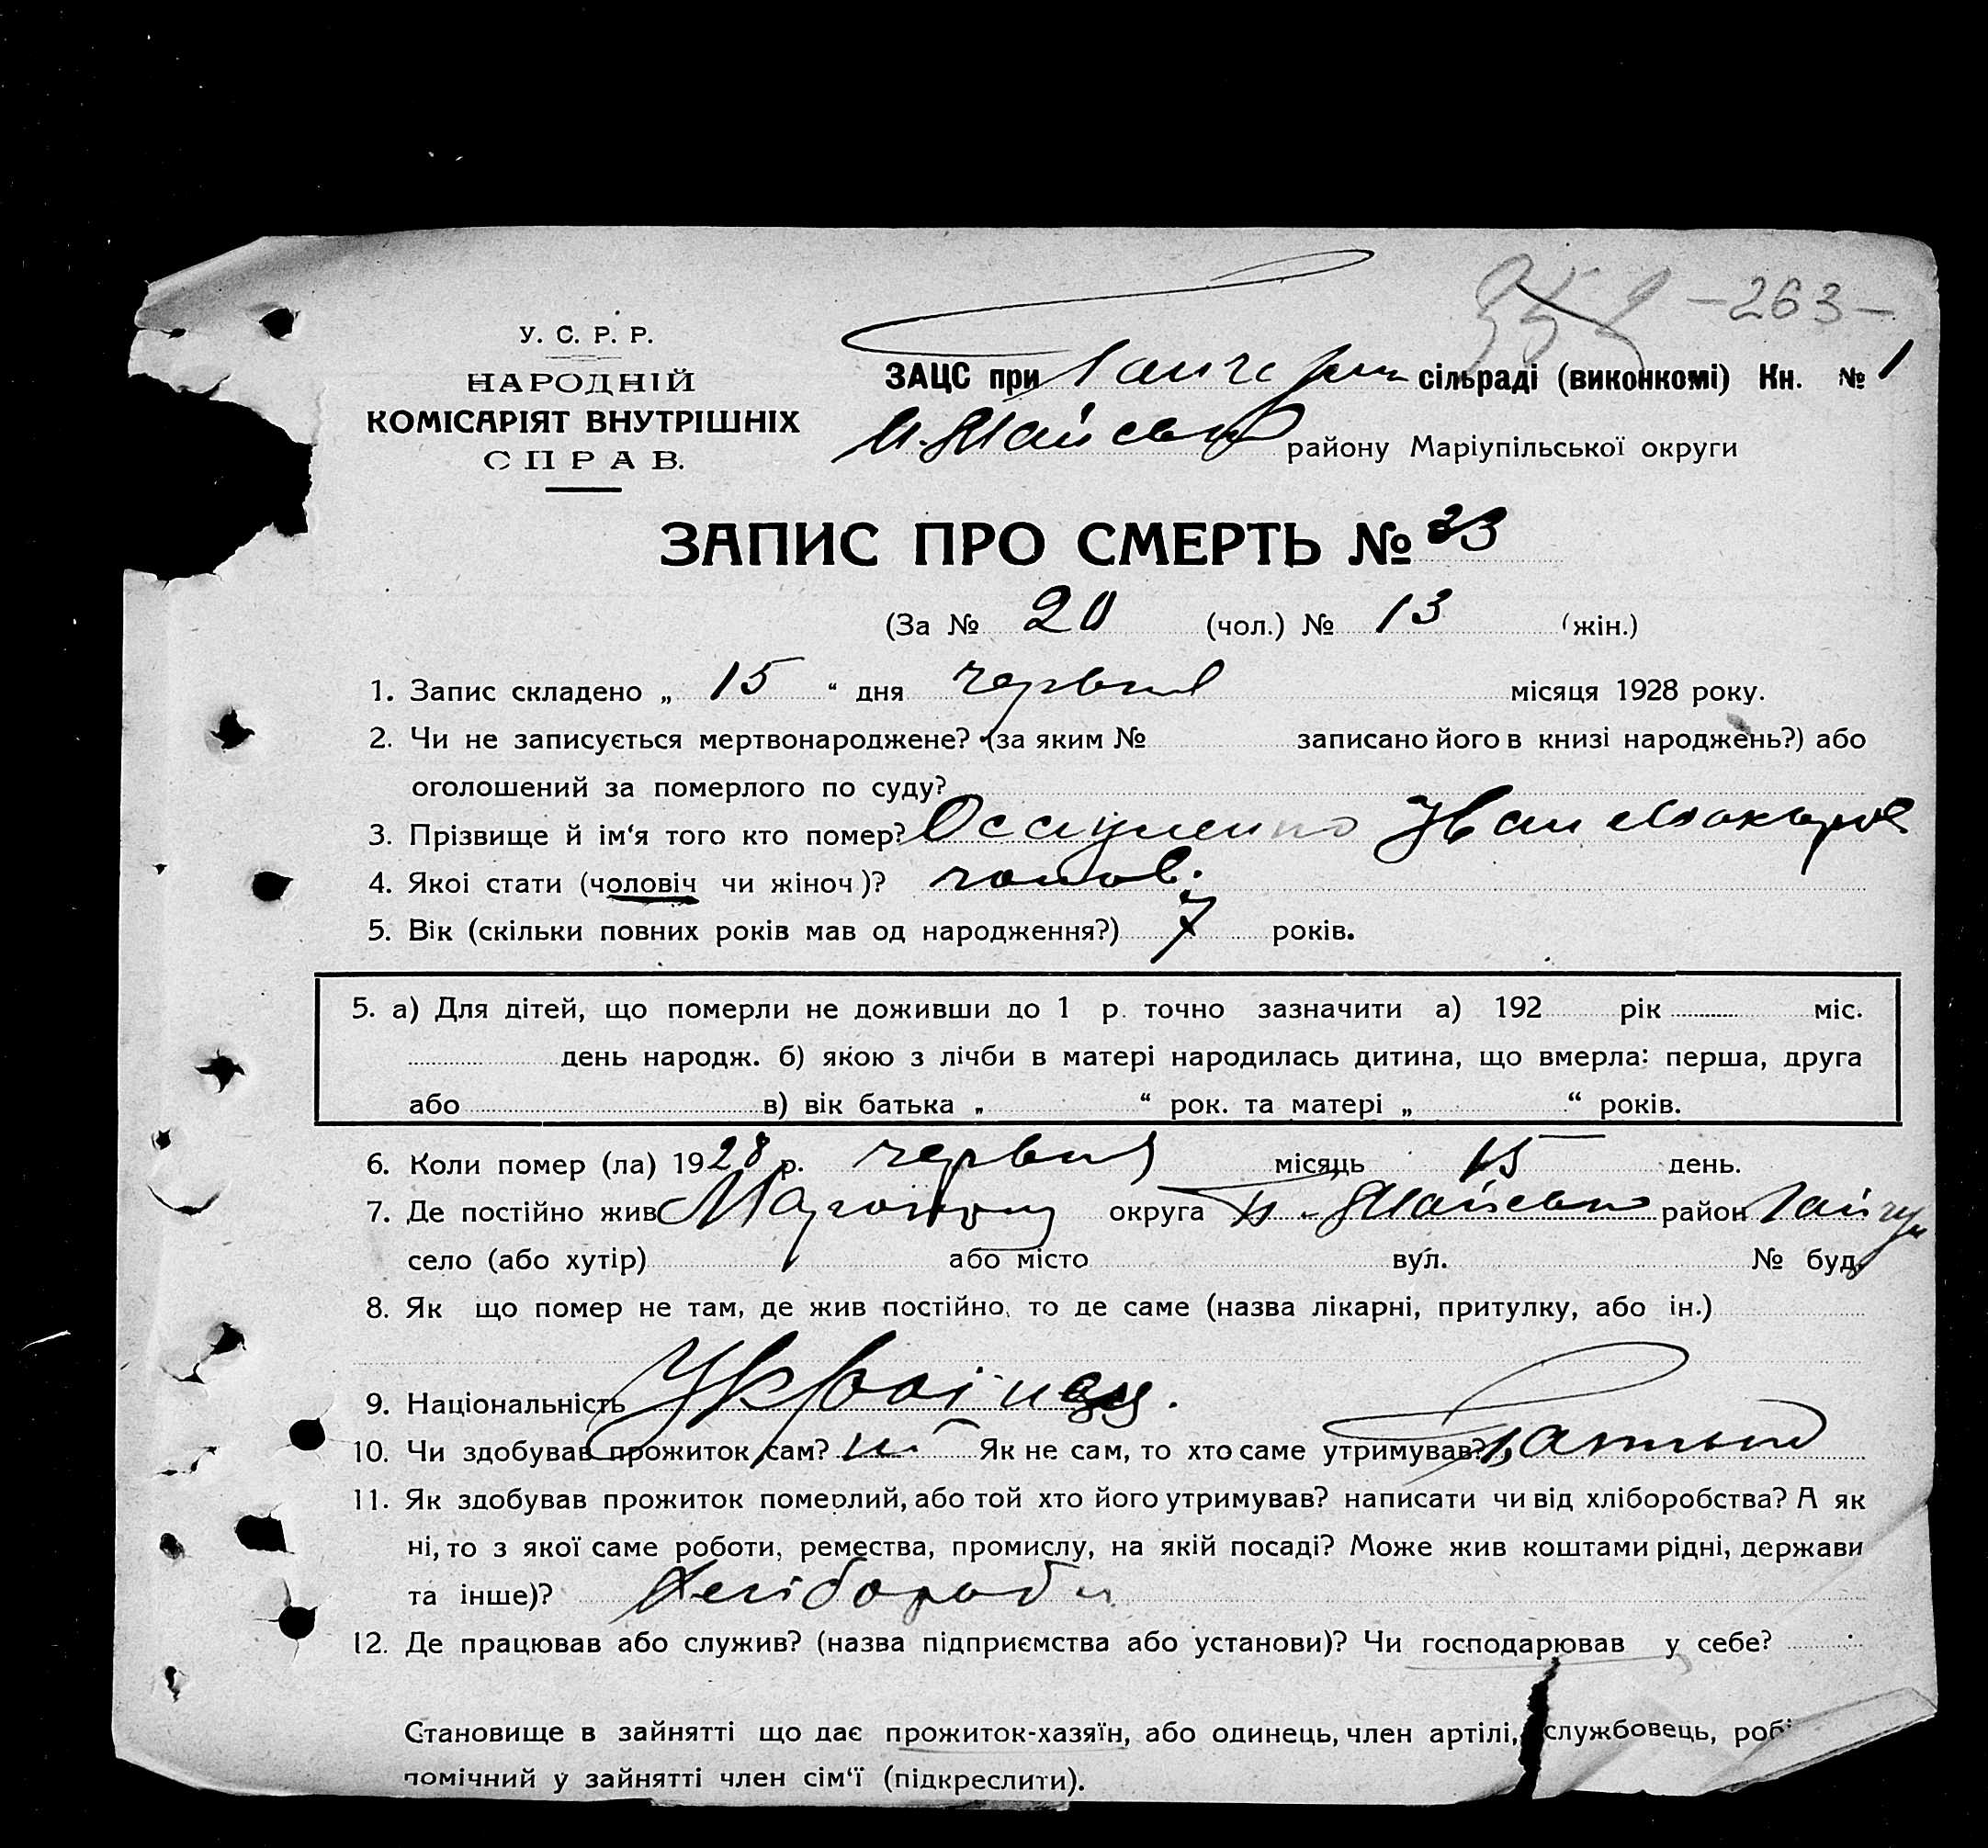 358 -263-
У. С. Р. Р.
НАРОДНІЙ
КОМІСАРІЯТ ВНУТРІШНІХ
СПРАВ.
ЗАЦС при сільраді (виконкомі) Кн. № 1
районy Маріупільської округи
ЗАПИС ПРО СМЕРТЬ № 33
(За № 20 (чол.) № 13 (жін.)
1. Запис складено „ 15 “ дня червня місяця 1928 року.
2. Чи не записується мертвонароджене? (за яким № записано його в книзі народжень?) або
оголошений за померлого по суду?
3. Прізвище й ім‘я того кто помер? Осауленко Іван Макаров
4. Якоі стати (чоловіч чи жіноч)? чолов.
5. Вік (скільки повних років мав од народження?) 7 років.
5. а) Для дітей, що померли не доживши до 1 р. точно зазначити а) 192 рік міс.
день народж. б) якою з лічби в матері народилась дитина, що вмерла: перша, друга
або в) вік батька „ “ рок. та матері „ “ років.
6. Коли помер (ла) 1928 р. червня місяць 15 день.
7. Де постійно жив округа район Гайчур
село (або хутір) або місто вул. № буд.
8. Як що помер не там, де жив постійно, то де саме (назва лікарні, притулку, або ін.)
9. Національність Українец.
10. Чи здобував прожиток сам? ні Як не сам, то хто саме утримував? Батько
11. Як здобував прожиток померлий, або той хто його утримував? написати чи від хліборобства? А як
ні, то з якої саме роботи, ремества, промислу, на якій посаді? Може жив коштами рідні, держави
та інше)? Хлібороб
12. Де працював або служив? (назва підприємства або установи)? Чи господарював у себе?
Становище в зайнятті що дає прожиток-хазяїн, або одинець, член артілі, службовець, робі
помічний у зайнятті член сім‘ї (підкреслити).